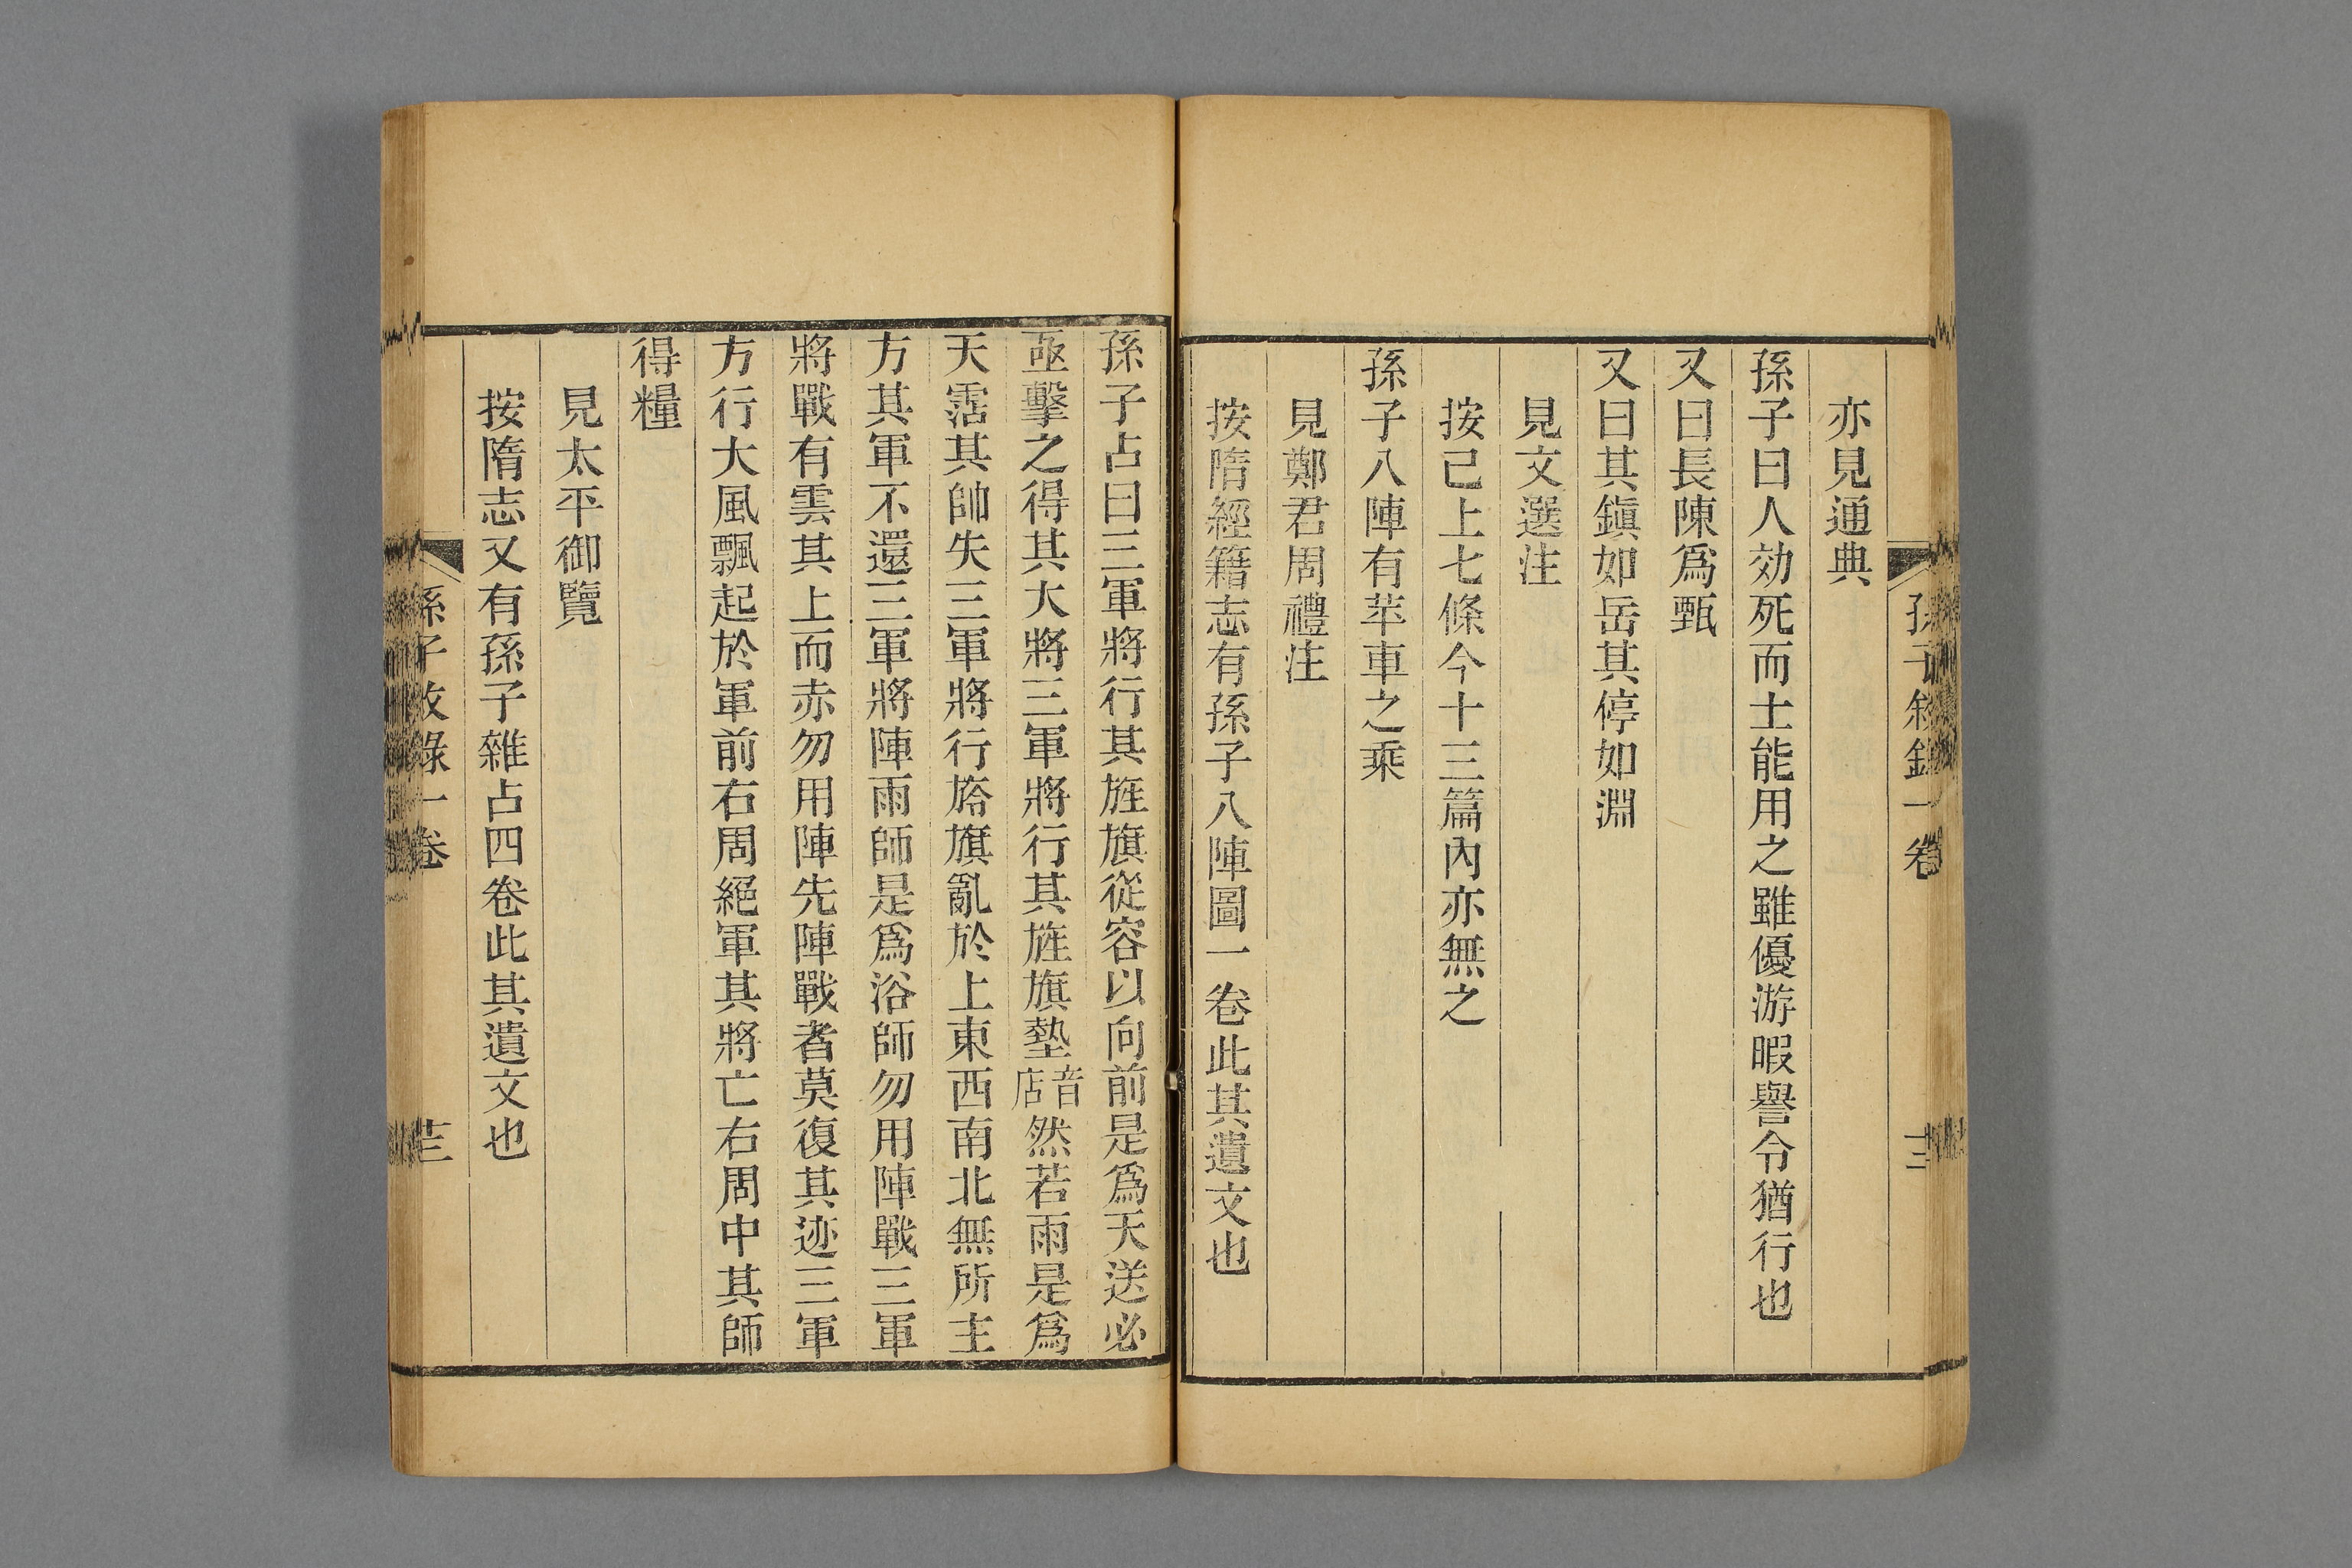 孫子敘錄一卷
亦見通典
孫子曰人効死而士能用之雖優游暇譽令猶行也
又曰長陳爲甄
又曰其鎭如岳其停如淵
見文選注
按已上七條今十三篇內亦無之
孫子八陣有苹車之乘
見鄭君周禮注
按隋經籍志有孫子八陣圖一卷此其遺文也
孫子占曰三軍將行其旌旗從容以向前是爲天送必
亟擊之得其大將三軍將行其旌旗墊音店然若雨是爲
天霑其帥失三軍將行旍旗亂於上東西南北無所主
方其軍不還三軍將陣雨師是爲浴師勿用陣戰三軍
將戰有雲其上而赤勿用陣先陣戰者莫復其迹三軍
方行大風飄起於軍前右周絕軍其將亡右周中其師
得糧
見太平御覽
按隋志又有孫子雜占四卷此其遺文也
孫子敘錄一卷